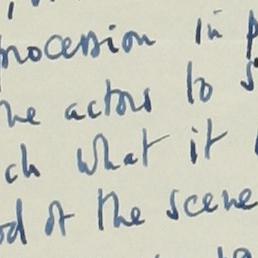 procession in p
he actors to s
ch what it
od of the scene